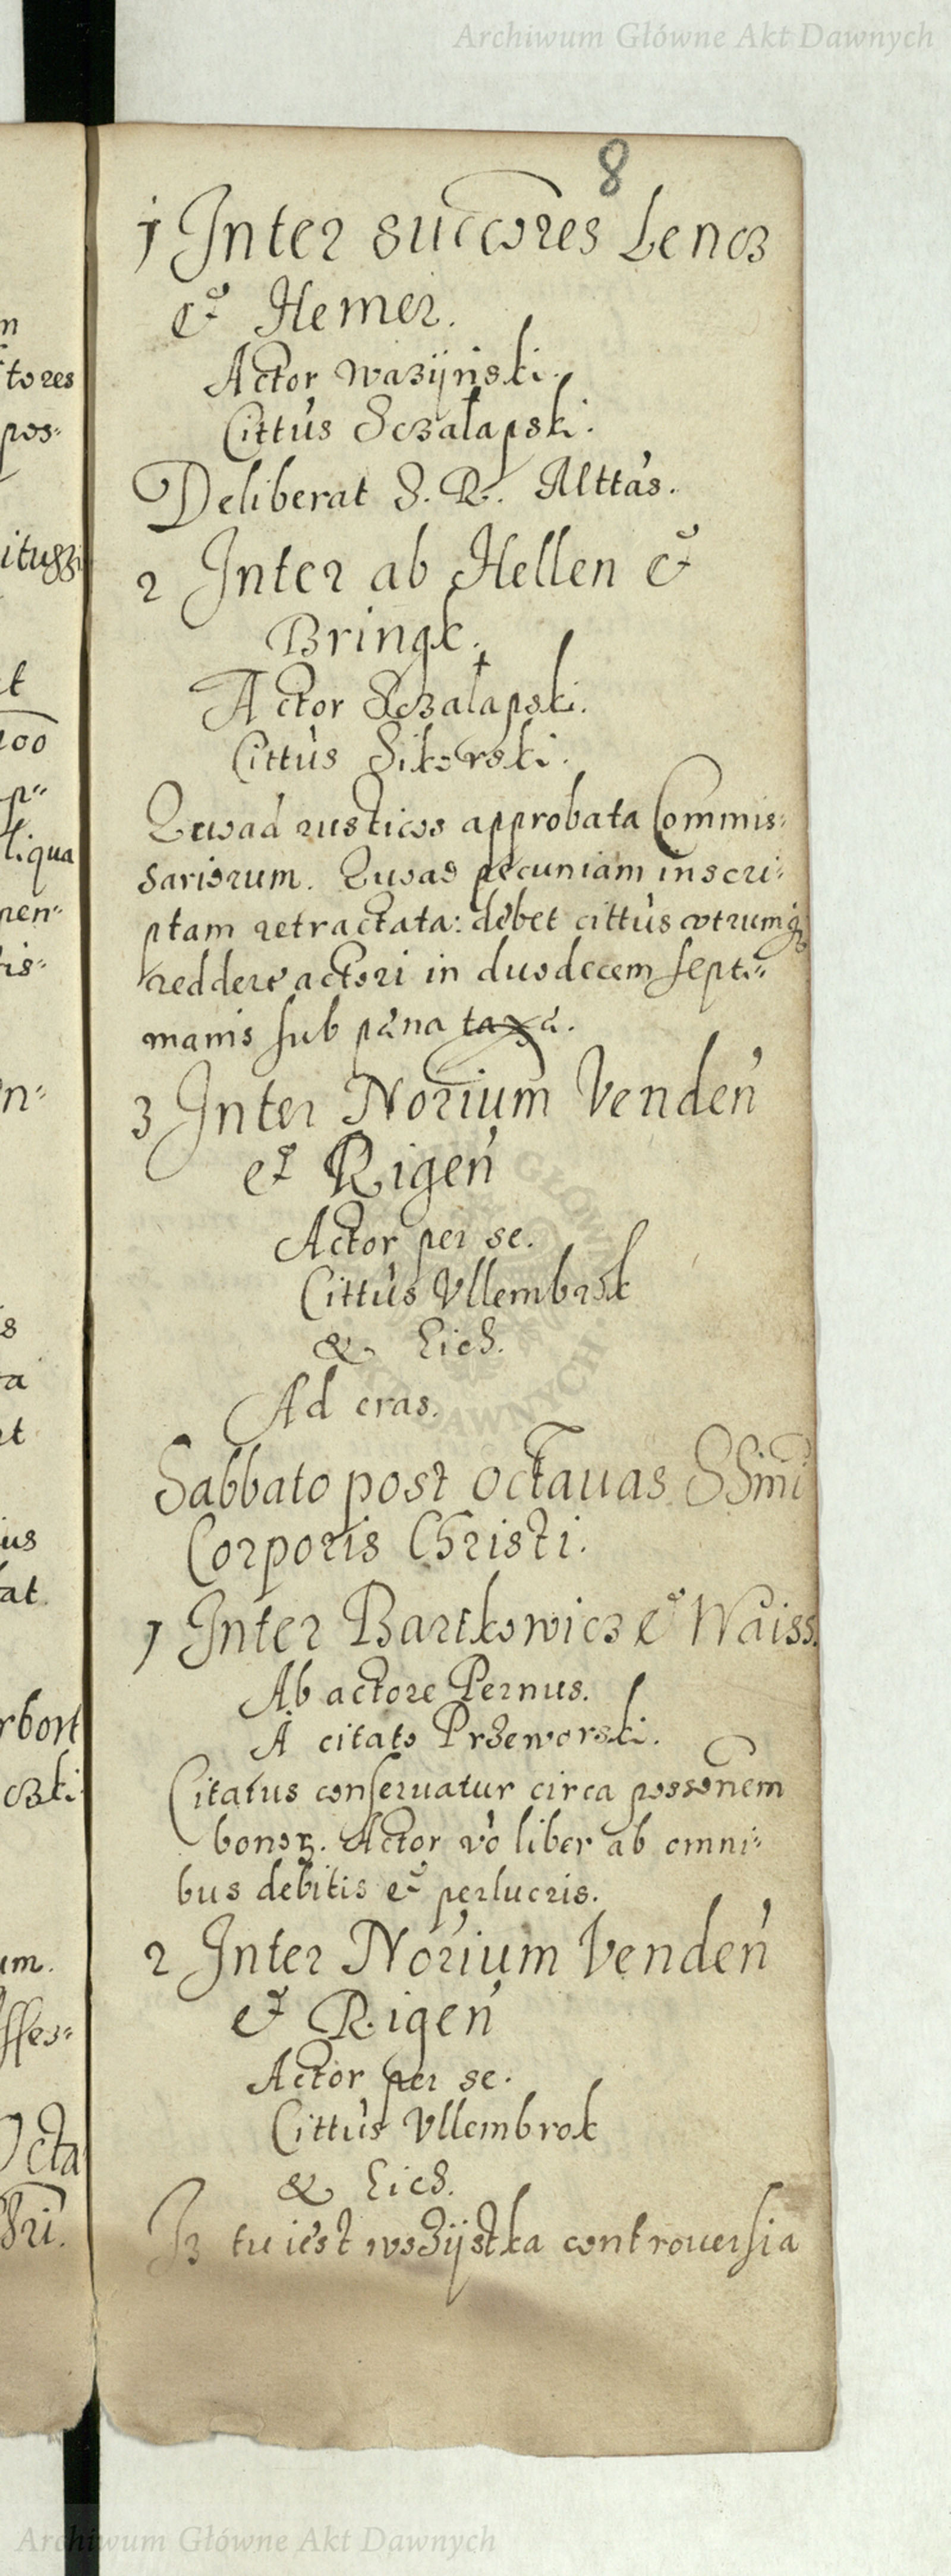 Archiwum Główne Akt Dawnych
8
1 Inter succores Lencz
et Hemer.
Actor Wazijnski.
Cittus Sczalapski.
Deliberat S. R. Alttas.
2 Inter ab Hellen et
Bringk.
Actor Sczalapski.
Cittus Sikorski.
Quoad rusticos approbata Commis:
sariorum. Quoad pecuniam inscri:
ptam retractata: debet cittus utrumq
reddere actori in duodecem septi=
manis sub pæna taxæ.
3 Inter Norium Venden
et Rigen
Actor per se.
Cittus Vllembrok
& Eich.
Ad cras.
Sabbato post octauas SSimi
Corporis Christi.
1 Inter Bartkowicz et Waiss.
Ab actore Pernus.
A citato Przeworski.
Citatus conseruatur circa possonem
bonor. Actor vo liber ab omni=
bus debitis et perlucris.
2 Inter Norium Venden
et Rigen
Actor per se.
Cittus Vllembrok
& Eich.
Iz tu iest wszijstka controuersia
n
tores
pos:
t
100
liqua
nen=
tis=
n=
s
ta
t
ius
at.
rbort
czki
um.
sses=
Octa
Archiwum Główne Akt Dawnych